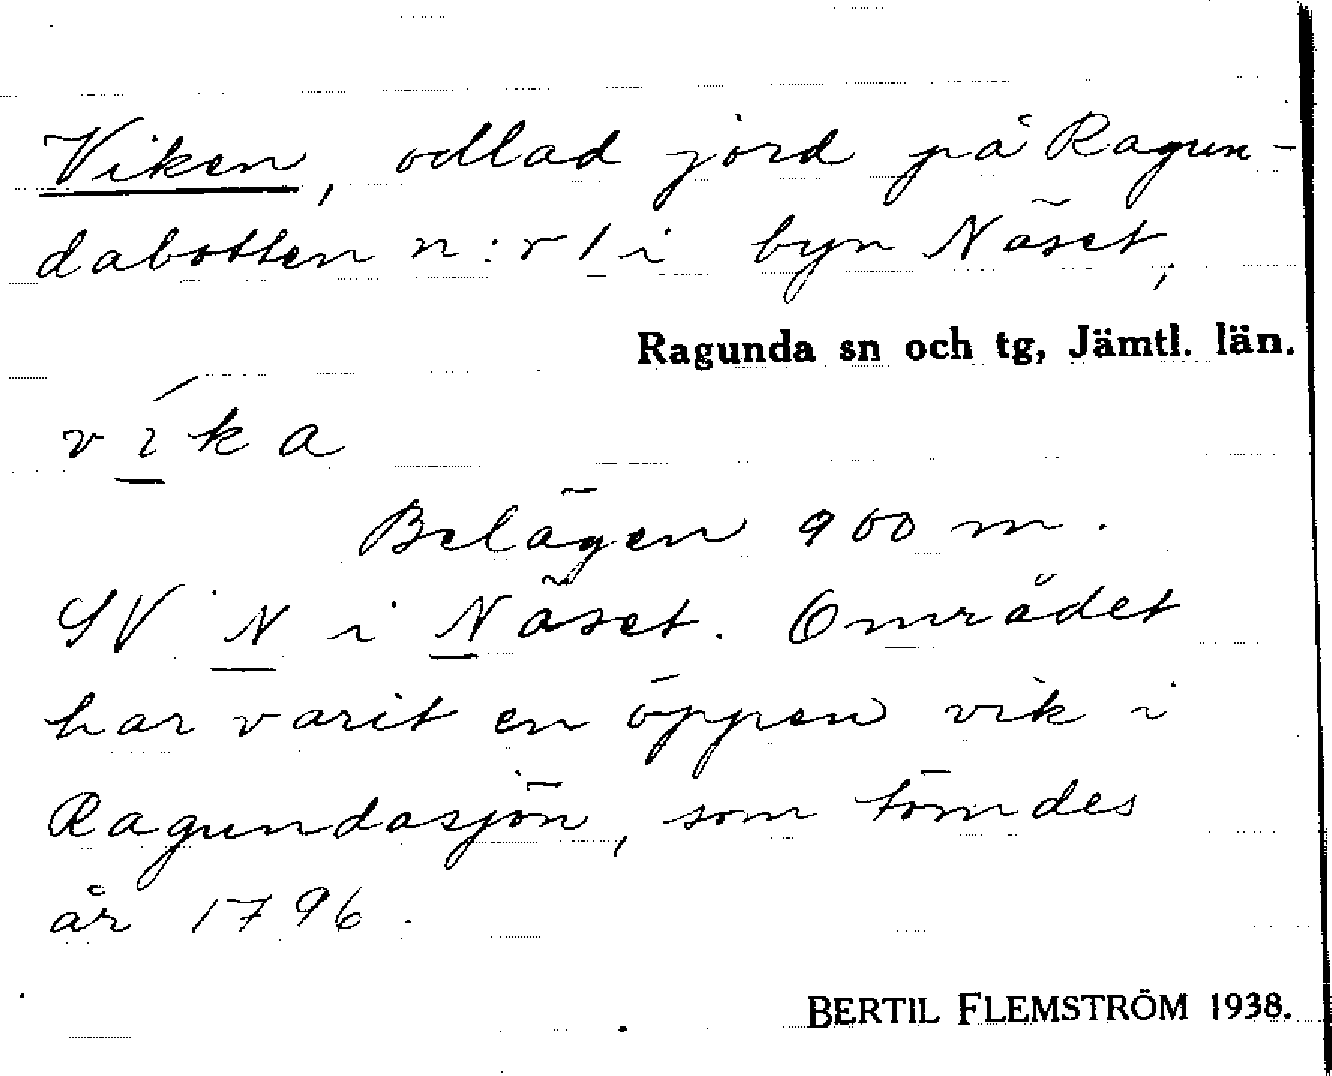 Viken, odlad jord på Ragun-
dabotten n:r 1 i byn Näset,
Ragunda sn och tg, Jämtl. län.
víka
Belägen 900 m.
SV N i Näset. Området
har varit en öppen vik i
Ragundasjön, som tömdes
år 1796.
BERTIL FLEMSTRÖM 1938.